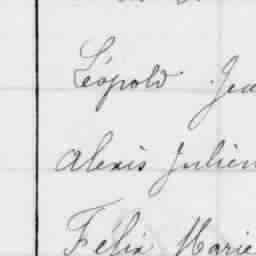 Léopold Jea
Alexis Julien
Félix Marie